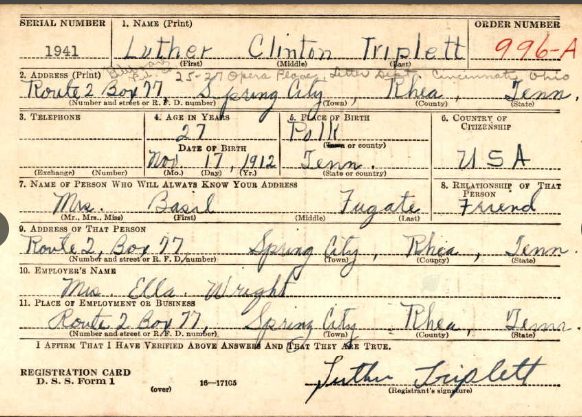 SERIAL NUMBER 1. NAME (Print) ORDER NUMBER
1941 Luther Clinton Triplett 996-A
(First) (Middle) (Last)
2. ADDRESS (Print) 25-27 Opera Place, Letter Dept. Cincinnati Ohio
Route 2 Box 77 Spring City, Rhea, Tenn.
(Number and street or R. F. D. number) (Town) (County) (State)
3. TELEPHONE 4. AGE IN YEARS 5. PLACE OF BIRTH 6. COUNTRY OF CITIZENSHIP
27 Polk
DATE OF BIRTH (Town or county)
Nov. 17, 1912 Tenn. USA
(Exchange) (Number) (Mo.) (Day) (Yr.) (State or country)
7. NAME OF PERSON WHO WILL ALWAYS KNOW YOUR ADDRESS 8. RELATIONSHIP OF THAT PERSON
Mrs. Basal Fugate Friend
(Mr., Mrs., Miss) (First) (Middle) (Last)
9. ADDRESS OF THAT PERSON
Route 2, Box 77 Spring City, Rhea, Tenn.
(Number and street or R. F. D. number) (Town) (County) (State)
10. EMPLOYER'S NAME
Mrs Ella Wright
11. PLACE OF EMPLOYMENT OR BUSINESS
Route 2 Box 77, Spring City Rhea, Tenn.
(Number and street or R. F. D. number) (Town) (County) (State)
I AFFIRM THAT I HAVE VERIFIED ABOVE ANSWERS AND THAT THEY ARE TRUE.
REGISTRATION CARD Luther Triplett
D. S. S. Form 1 (over) 16—17105 (Registrant's signature)